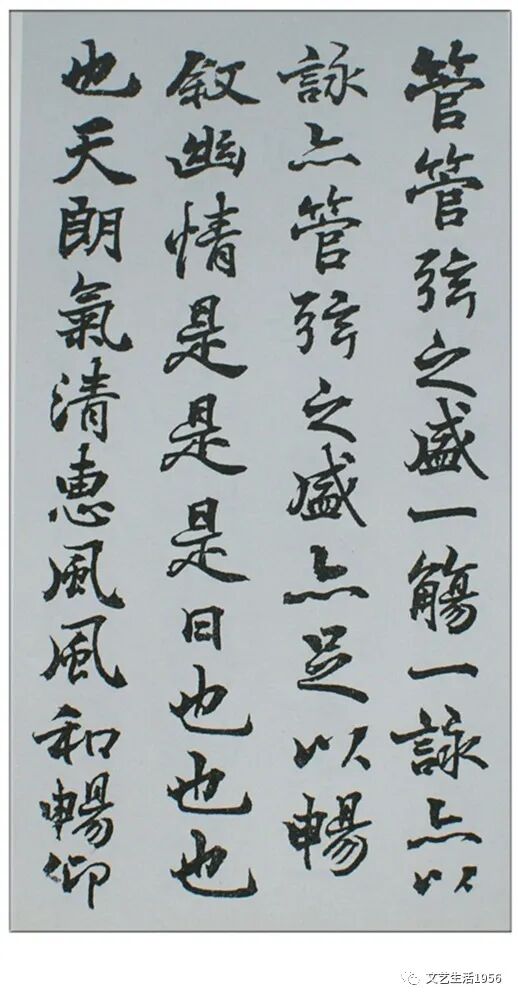 管管弦之盛一觴一詠亦以
詠亦管弦之盛亦足以暢
敘幽情是是是日也也也
也天朗氣清惠風風和暢仰
文艺生活1956